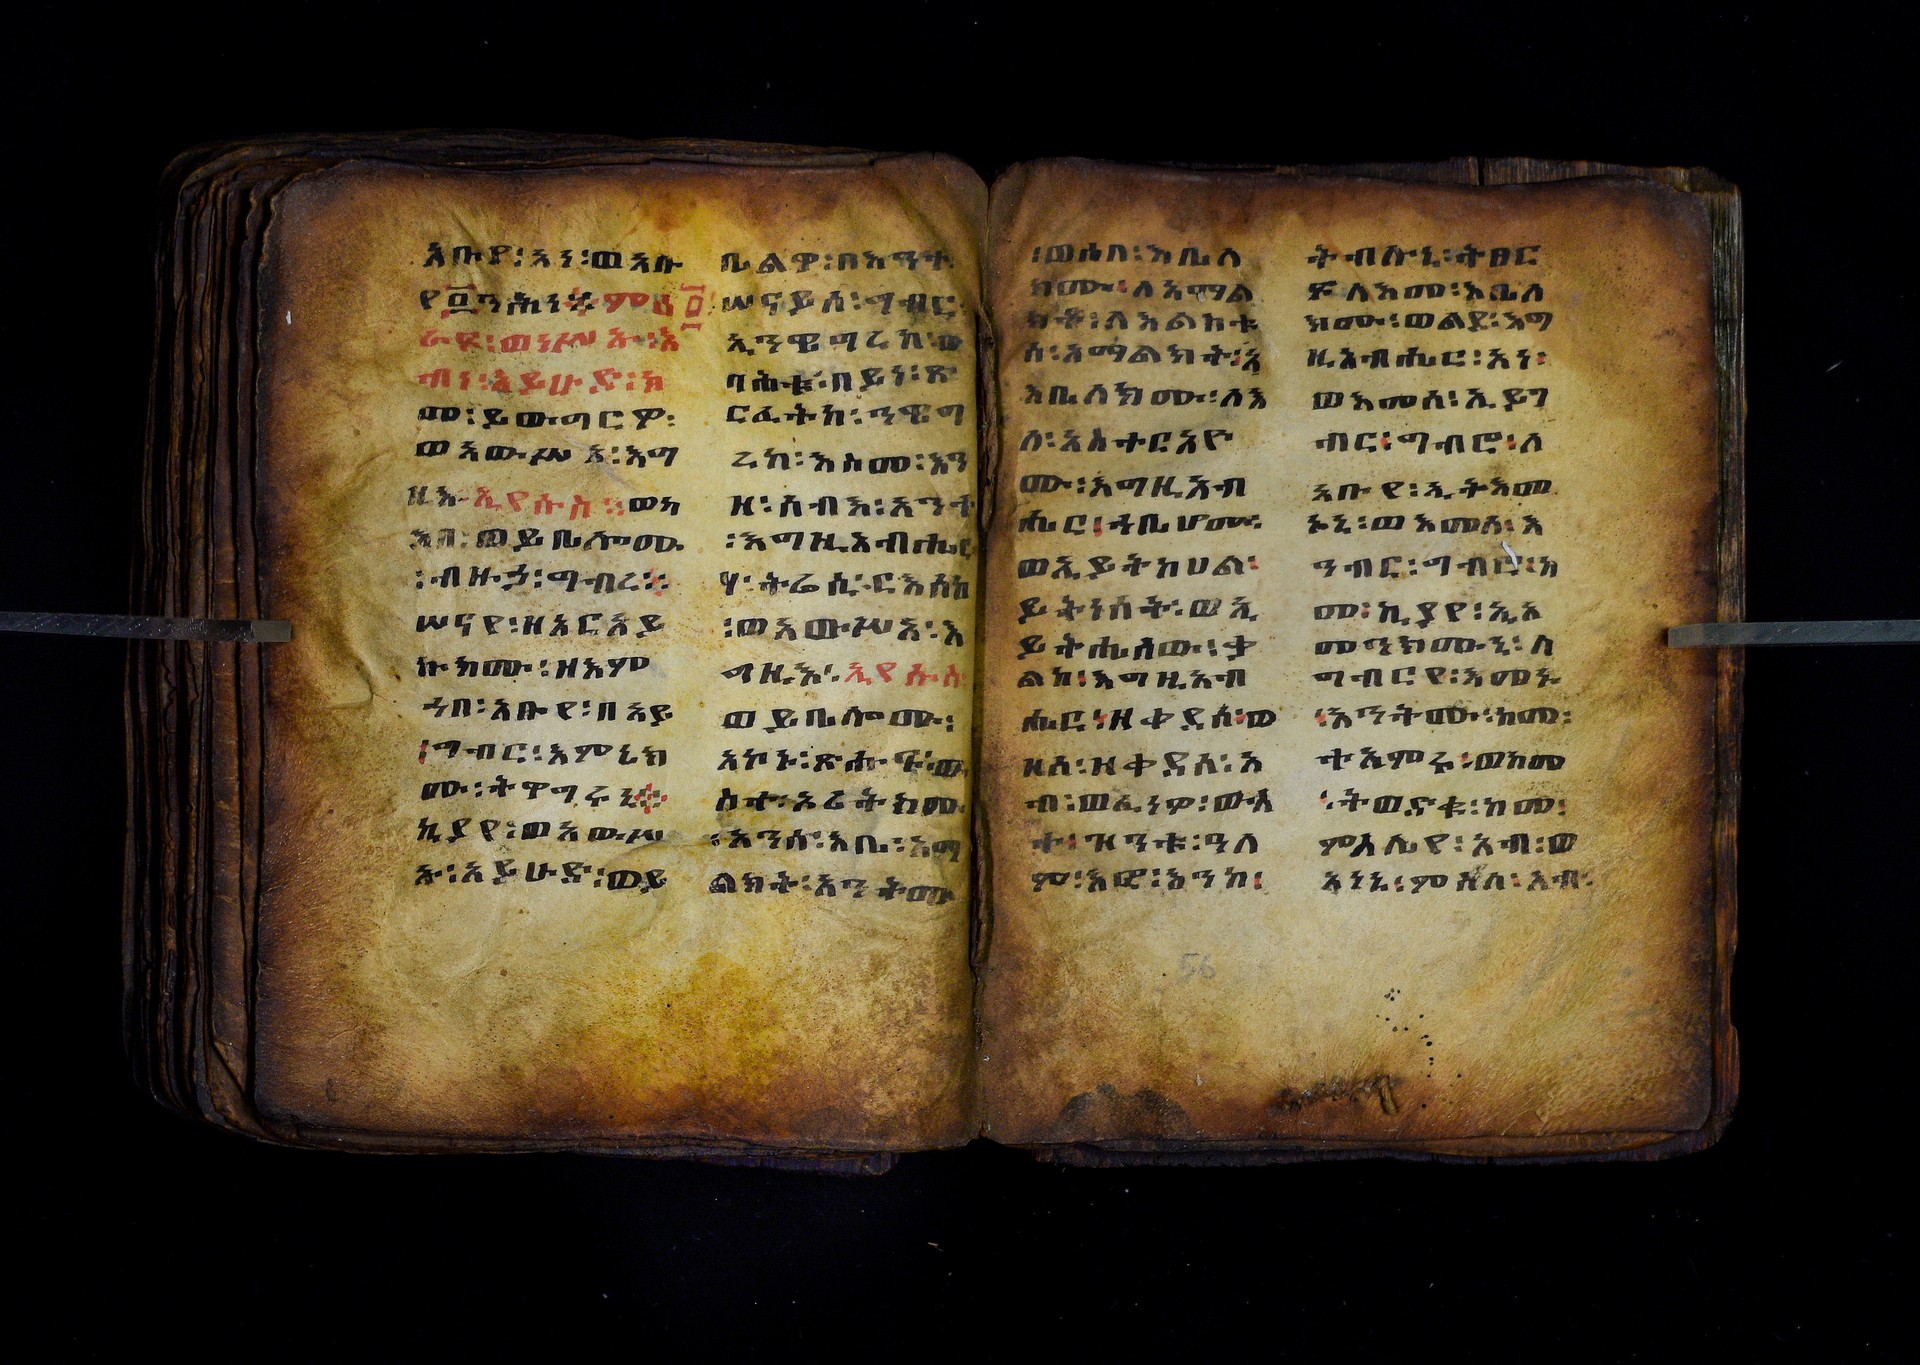 አቡየ፡አነ፡ወአቡ
የ፩ንሕነ፨ምዕ፩
ራፍ፡ወነሥኡ፡እ
ብነ፡አይሁድ፡ከ
መ፡ይውግርዎ፡
ወአውሥአ፡እግ
ዚእ፡ኢየሱስ፡፡ወካ
እበ፡ወይቤሎሙ
፡ብዙኃ፡ግብረ፨
ሠናየ፡ዘአርአይ
ኩክሙ፡ዘእም
ኀበ፡አቡየ፡በአይ
፡ግብር፡እምኔክ
ሙ፡ትዋግሩኒ፨
ኪያየ፡ወአውሥ
ኡ፡አይሁድ፡ወይ
ቤልዎ፡በእንተ
ሠናይሰ፡ግብር፡
ኢንዌግረከ፡ወ
ባሕቱ፡በይነ፡ጽ
ርፈትከ፡ንዌግ
ረከ፡እስመ፡እን
ዘ፡ሰብእ፡አንተ
፡እግዚአብሔር
ሃ፡ትሬሲ፡ርእሰከ
፡ወአውሥአ፡እ
ግዚእ፡ኢየሱስ
ወይቤሎሙ፡
አኮኑ፡ጽሑፍ፡ው
ስተ፡ኦሪትክሙ
፡አንሰ፡እቤ፡አማ
ልክት፡አንትሙ
፡ወሶበ፡እቤለ
ክሙ፡ለአማል
ክት፡ለእልክቱ
ሰ፡አማልክት፡እ
እቤለክሙ፡ለእ
ለ፡አስተርአዮ
ሙ፡እግዚአብ
ሔር፡ኀቤሆሙ፡
ወኢይትከሀል፡
ይትነሰት፡ወኢ
ይትሐለው፡ቃ
ልከ፡እግዚአብ
ሔር፡ዘቀደሰ፡ወ
ዘሰ፡ዝቀደሰ፡አ
ብ፡ወፈነዎ፡ውስ
ተ፡ዝንቱ፡ዓለ
ም፡እፎ፡እንከ፡
ትብሉኒ፡ትፀር
ፍ፡ለእመ፡እቤለ
ክሙ፡ወልደ፡እግ
ዚአብሔር፡አነ፡
ወእመሰ፡ኢይገ
ብር፡ግብሮ፡ለ
አቡየ፡ኢትእመ
ኑኒ፡ወእመሰ፡እ
ገብር፡ግብሮ፡እ
መ፡ኪያየ፡ኢአ
መንክሙኒ፡ለ
ግብርየ፡እመኑ
፡እንትሙ፡ከመ፡
ተአምሩ፡ወከመ
፡ትወድቁ፡ከመ፡
ምስሌየ፡አብ፡ወ
አነኒ፡ምስለ፡አብ፡
56